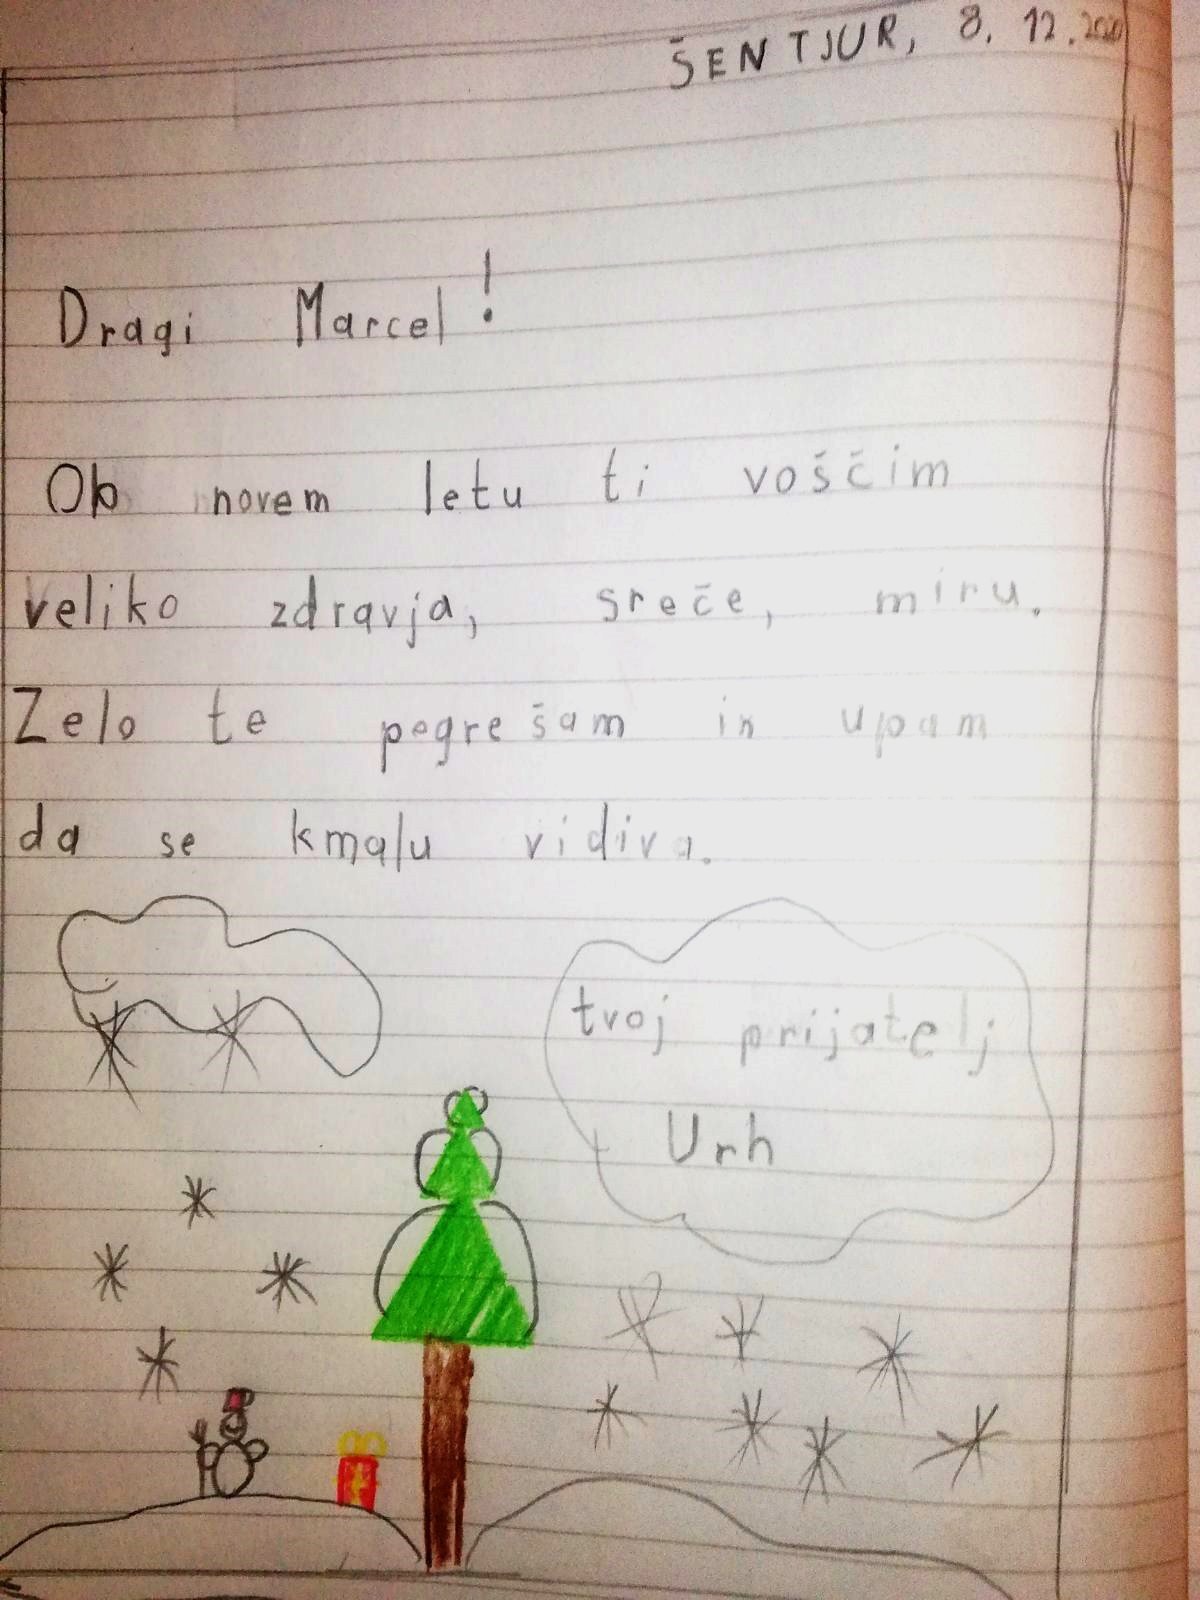 ŠENTJUR, 8. 12. 2020
Dragi Marcel!
Ob novem letu ti voščim
veliko zdravja, sreče, miru.
Zelo te pogrešam in upam
da se kmalu vidiva.
tvoj prijatelj
Urh